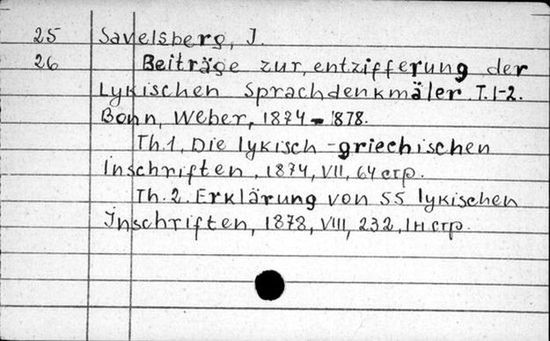 25 Savelsberg, J.
26 Beiträge zur entzifferung der
Lykischen Sprachdenkmäler. T.1-2.
Bonn, Weber, 1874-1878.
Th.1. Die lykisch-griechischen
Inschriften, 1874, VII, 64 стр.
Th.2. Erklärung von 55 lykischen
Inschriften, 1878, VIII, 232, 1н стр.